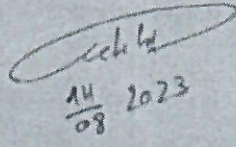 14/08 2023